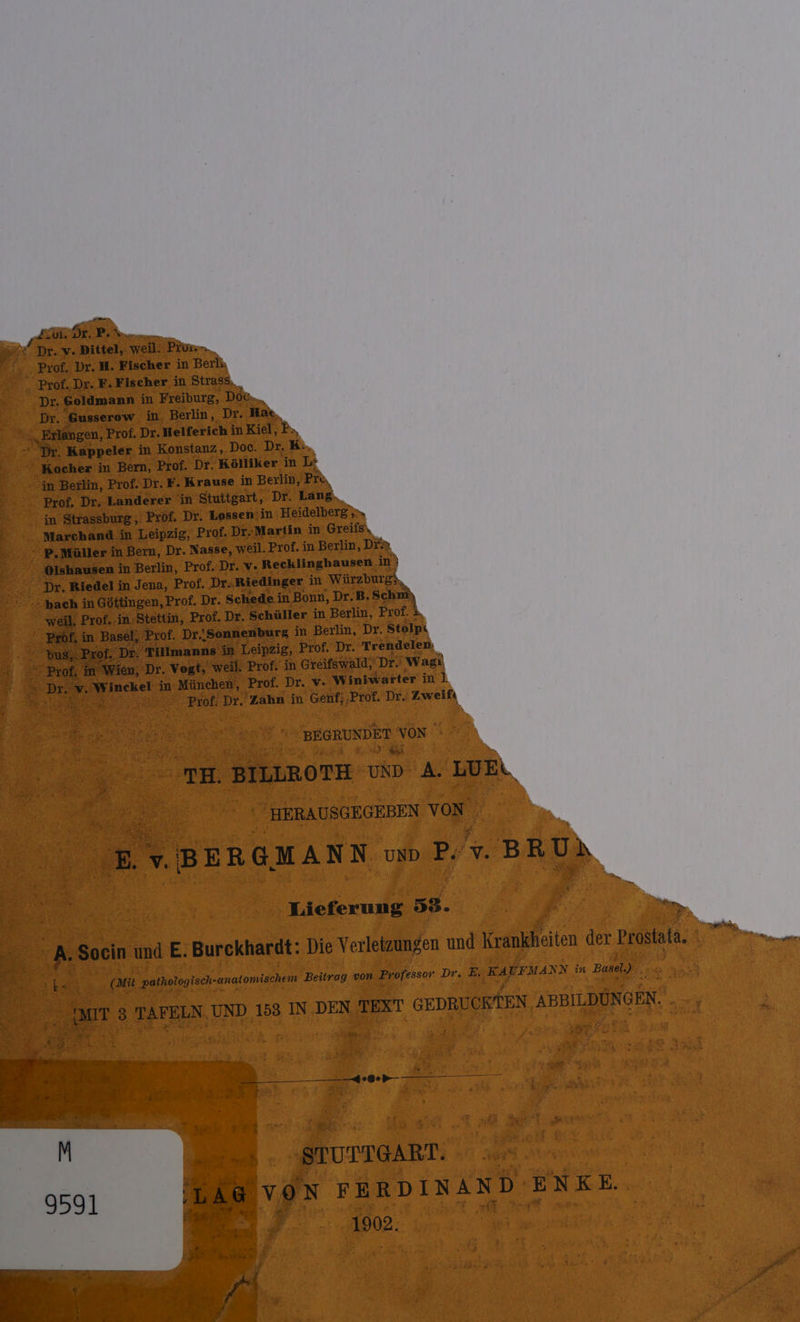 Dr. P.
Dr. v. Dittel, weil.
Prof. Dr. H. Fischer in
Prof. Dr. F. Fischer in
Dr. Goldmann in Freiburg,
Dr. Gusserow in Berlin, Dr.
Erlangen, Prof. Dr. Helferich in Kiel,
Dr. Kappeler in Konstanz, Doc. Dr.
Kocher in Bern, Prof. Dr. Kölliker in
in Berlin, Prof. Dr. F. Krause in Berlin,
Prof. Dr. Landerer in Stuttgart, Dr. Lang
in Strassburg, Prof. Dr. Lossen in Heidelberg
Marchand in Leipzig, Prof. Dr. Martin in Greifs
P. Müller in Bern, Dr. Nasse, weil. Prof. in Berlin, Dr.
Olshausen in Berlin, Prof. Dr. v. Recklinghausen in
Dr. Riedel in Jena, Prof. Dr. Riedinger in Würzburg,
bach in Göttingen, Prof. Dr. Schede in Bonn, Dr. B. Schm
weil. Prof. in Stettin, Prof. Dr. Schüller in Berlin, Prof.
Prof. in Basel, Prof. Dr. Sonnenburg in Berlin, Dr. Stolp
bus, Prof. Dr. Tillmanns in Leipzig, Prof. Dr. Trendelen
Prof. in Wien, Dr. Vogt, weil. Prof. in Greifswald, Dr. Wag
Dr. v. Winckel in München, Prof. Dr. v. Winiwarter in
Prof. Dr. Zahn in Genf, Prof. Dr. Zweif
BEGRUNDET VON
TH. BILLROTH UND A. LUE
HERAUSGEGEBEN VON
E. v. BERGMANN UND P. v. BRU
Lieferung 53.
A. Socin und E. Burckhardt: Die Verletzungen und Krankheiten der Prostata.
(Mit pathologisch-anatomischem Beitrag von Professor Dr. E. KAUFMANN in Basel.)
MIT 3 TAFELN UND 153 IN DEN TEXT GEDRUCKTEN ABBILDUNGEN.
STUTTGART.
LAG VON FERDINAND ENKE.
1902.
M
9591